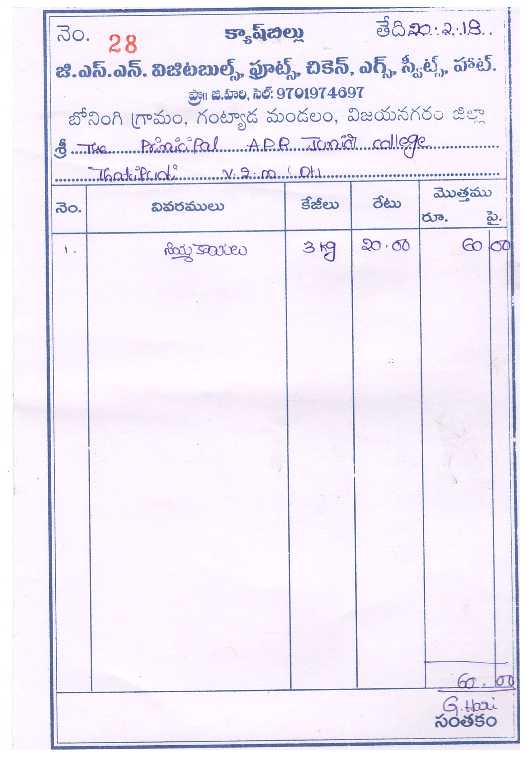 నెం. 28 క్యాష్‌బిల్లు తేది 20.2.18.
జి.ఎస్.ఎన్. విజిటబుల్స్, ఫ్రూట్స్, చికెన్, ఎగ్స్, స్వీట్స్, హాట్.
ప్రొ॥ జి.హరి, సెల్: 9701974697
బోనంగి గ్రామం, గంట్యాడ మండలం, విజయనగరం జిల్లా
శ్రీ The Principal A.P.R. Junior college
Thatipudi V.Z.M (Dt)
నెం. వివరములు కేజీలు రేటు మొత్తము
రూ. పై.
1. 3 kg 20.00 60 00
60.00
G. Hari
సంతకం